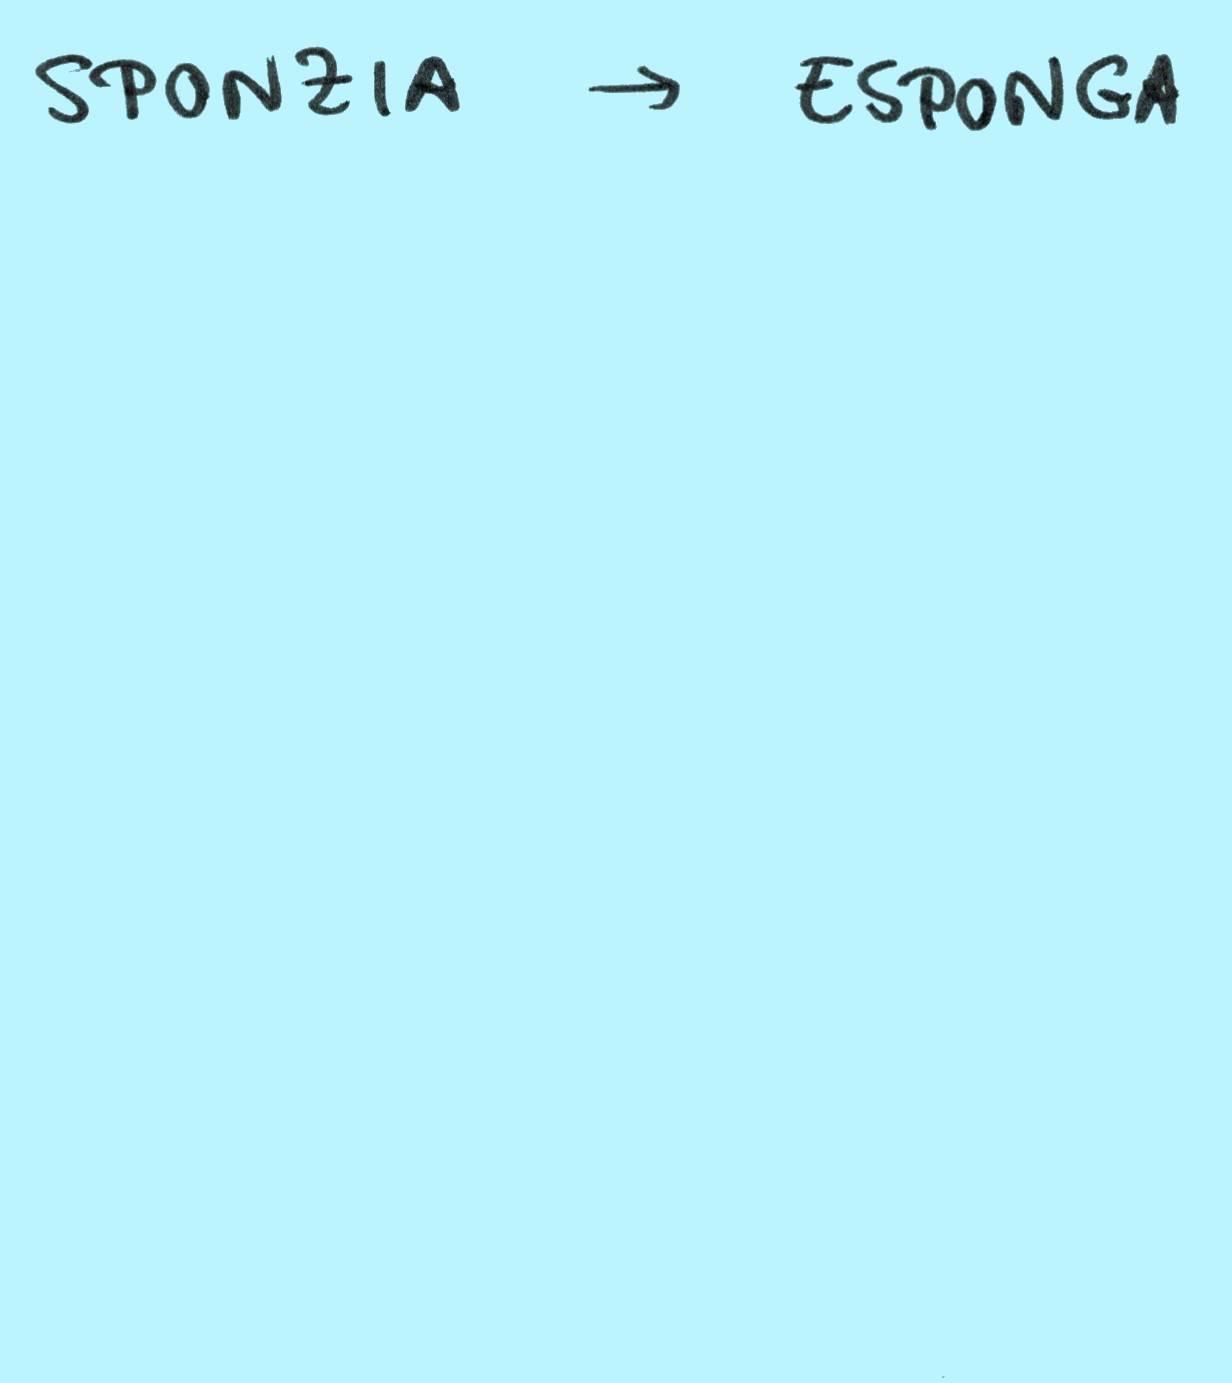 SPONZIA → ESPONGA